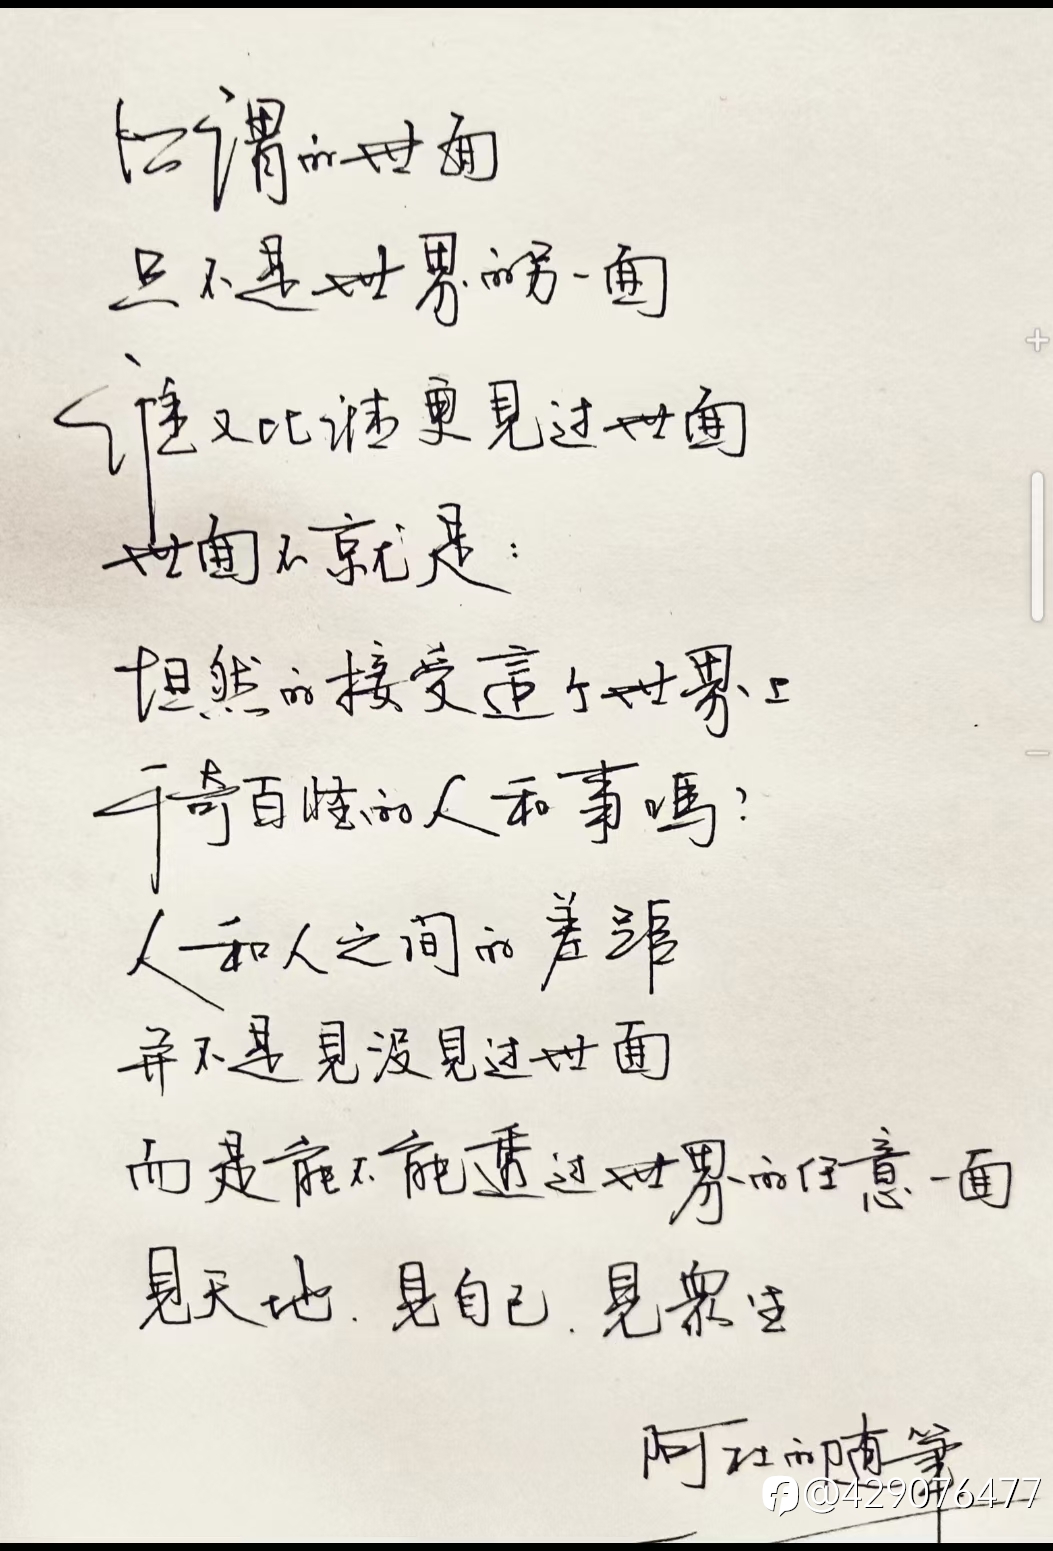 所谓的世面
只不是世界的另一面
谁又比谁更見过世面
世面不就是：
坦然的接受這个世界上
千奇百怪的人和事嗎？
人和人之间的差距
并不是見没見过世面
而是能不能透过世界的任意一面
見天地.見自己.見衆生
阿杜的随筆
@429076477